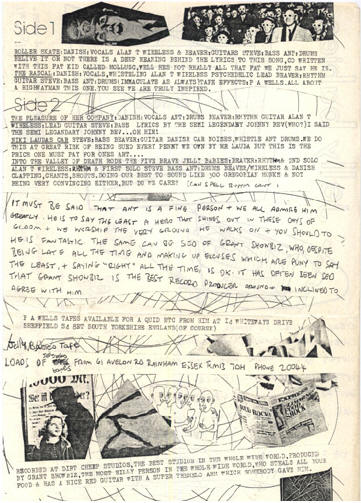 Side 1
ROLLER SKATE: DANISH: VOCALS ALAN T WIRELESS & BEAVER: GUITARS STEVE: BASS ANT: DRUMS
BELIVE IT OR NOT THERE IS A DEEP MEANING BEHIND THE LYRICS TO THIS SONG, CO WRITTEN
WITH THIS FAT KID CALLED MOLLUSC, WELL HES NOT REALLY ALL THAT FAT WE JUST SAY HE IS.
THE RASCAL: DANISH: VOCALS, WHISTELING ALAN T WIRELESS PSYCHEDELIC LEAD BEAVER: RHYTHM
GUITAR STEVE: BASS ANT: DRUMS (IMMACULATE AS ALWAYS) TAPE EFFECTS: P A WELLS. ALL ABOUT
A HIGHWAYMAN THIS ONE. YOU SEE WE ARE TRULY INSPIRED.
Side 2
THE PLEASURE OF HER COMPANY: DANISH: VOCALS ANT: DRUMS BEAVER: RHYTHM GUITAR ALAN T
WIRELESS: LEAD GUITAR STEVE: BASS LYRICS BY THE SEMI LEGENDARY JOHNNY BEV, (WHO) I SAID
THE SEMI LEGANDARY JOHNNY BEV... OH HIM!
NIKI LAUDAS CAR STEVE: BASS BEAVER: GUITAR DANISH CAR NOISES, WHISTLE ANT DRUMS. WE DO
THIS AT GREAT RISK OF BEING SUED EVERY PENNY WE OWN BY MR LAUDA BUT THIS IS THE
PRICE ONE MUST PAY FOR ONES ART....
INTO THE VALLEY OF DEATH RODE THE FIVE BRAVE JELLY BABIES: BEAVER: AND SOLO
ALAN T WIRELESS: A FIRST SOLO STEVE BASS ANT: DRUMS BEAVER/WIRELESS & DANISH
CLAPPING, CHANTS, SHOUTS. DOING OUR BEST TO SOUND LIKE YOU GREGORIAN MUNKS & NOT
BEING VERY CONVINCING EITHER, BUT DO WE CARE? (CAN SPELL BUT)
IT MUST BE SAID THAT ANT IS A FINE PERSON & WE ALL ADMIRE HIM
GREATLY. HE IS TO SAY THE LEAST A HERO THAT SHINES OUT IN THESE DAYS OF
GLOOM & WE WORSHIP THE VERY GROUND HE WALKS ON & YOU SHOULD TO
HE IS FANTASTIC. THE SAME CAN BE SAID OF GRANT SHOWBIZ, WHO, DESPITE
BEING LATE ALL THE TIME AND MAKING UP EXCUSES WHICH ARE PUNY TO SAY
THE LEAST, & SAYING "RIGHT" ALL THE TIME, IS OK. IT HAS OFTEN BEEN SAID
THAT GRANT SHOWBIZ IS THE BEST RECORD PRODUCER AROUND INCLINED TO
AGREE WITH HIM
P A WELLS TAPES AVAILABLE FOR A QUID ETC FROM HIM AT 24 WHITEWAYS DRIVE
SHEFFIELD S4 8ET SOUTH YORKSHIRE ENGLAND (OF COURSE)
Jelly Babies Tape
LOADS OF FROM 61 AVELON RD RAINHAM ESSEX RM13 7DH PHONE 20044
RECORDED AT DIRT CHEEP STUDIOS, THE BEST STUDIOS IN THE WHOLE WIDE WORLD, PRODUCED
BY GRANT SHOWBIZ, THE MOST SILLY PERSON IN THE WHOLE WIDE WORLD, WHO STEALS ALL YOUR
FOOD & HAS A NICE RED GUITAR WITH A SUPER THROUGH AMP WHICH SOMEBODY GAVE HIM.